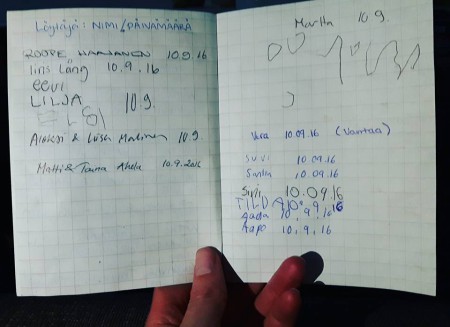 Löytäjä: NIMI / PÄIVÄMÄÄRÄ
ROOPE 10.9.16
Iiris Lång 10.9.16
eevi
LILJA 10.9.
Aleksi & Liisa 10.9
Matti & Ahola 10.9.2016
Martta 10.9.
Vera 10.09.16 (Vantaa)
SUVI 10.09.16
Santtu 10.09.16
Siri 10.09.16
TILDA 10.9.16
Aada 10.9.16
Aapo 10.9.16